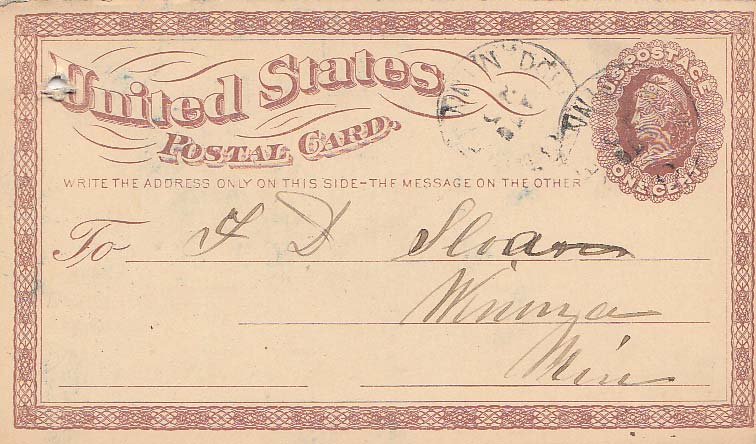 United States
POSTAL CARD.
U.S. POSTAGE
ONE CENT
WRITE THE ADDRESS ONLY ON THIS SIDE-THE MESSAGE ON THE OTHER
To F D Sloan
Winona
Min